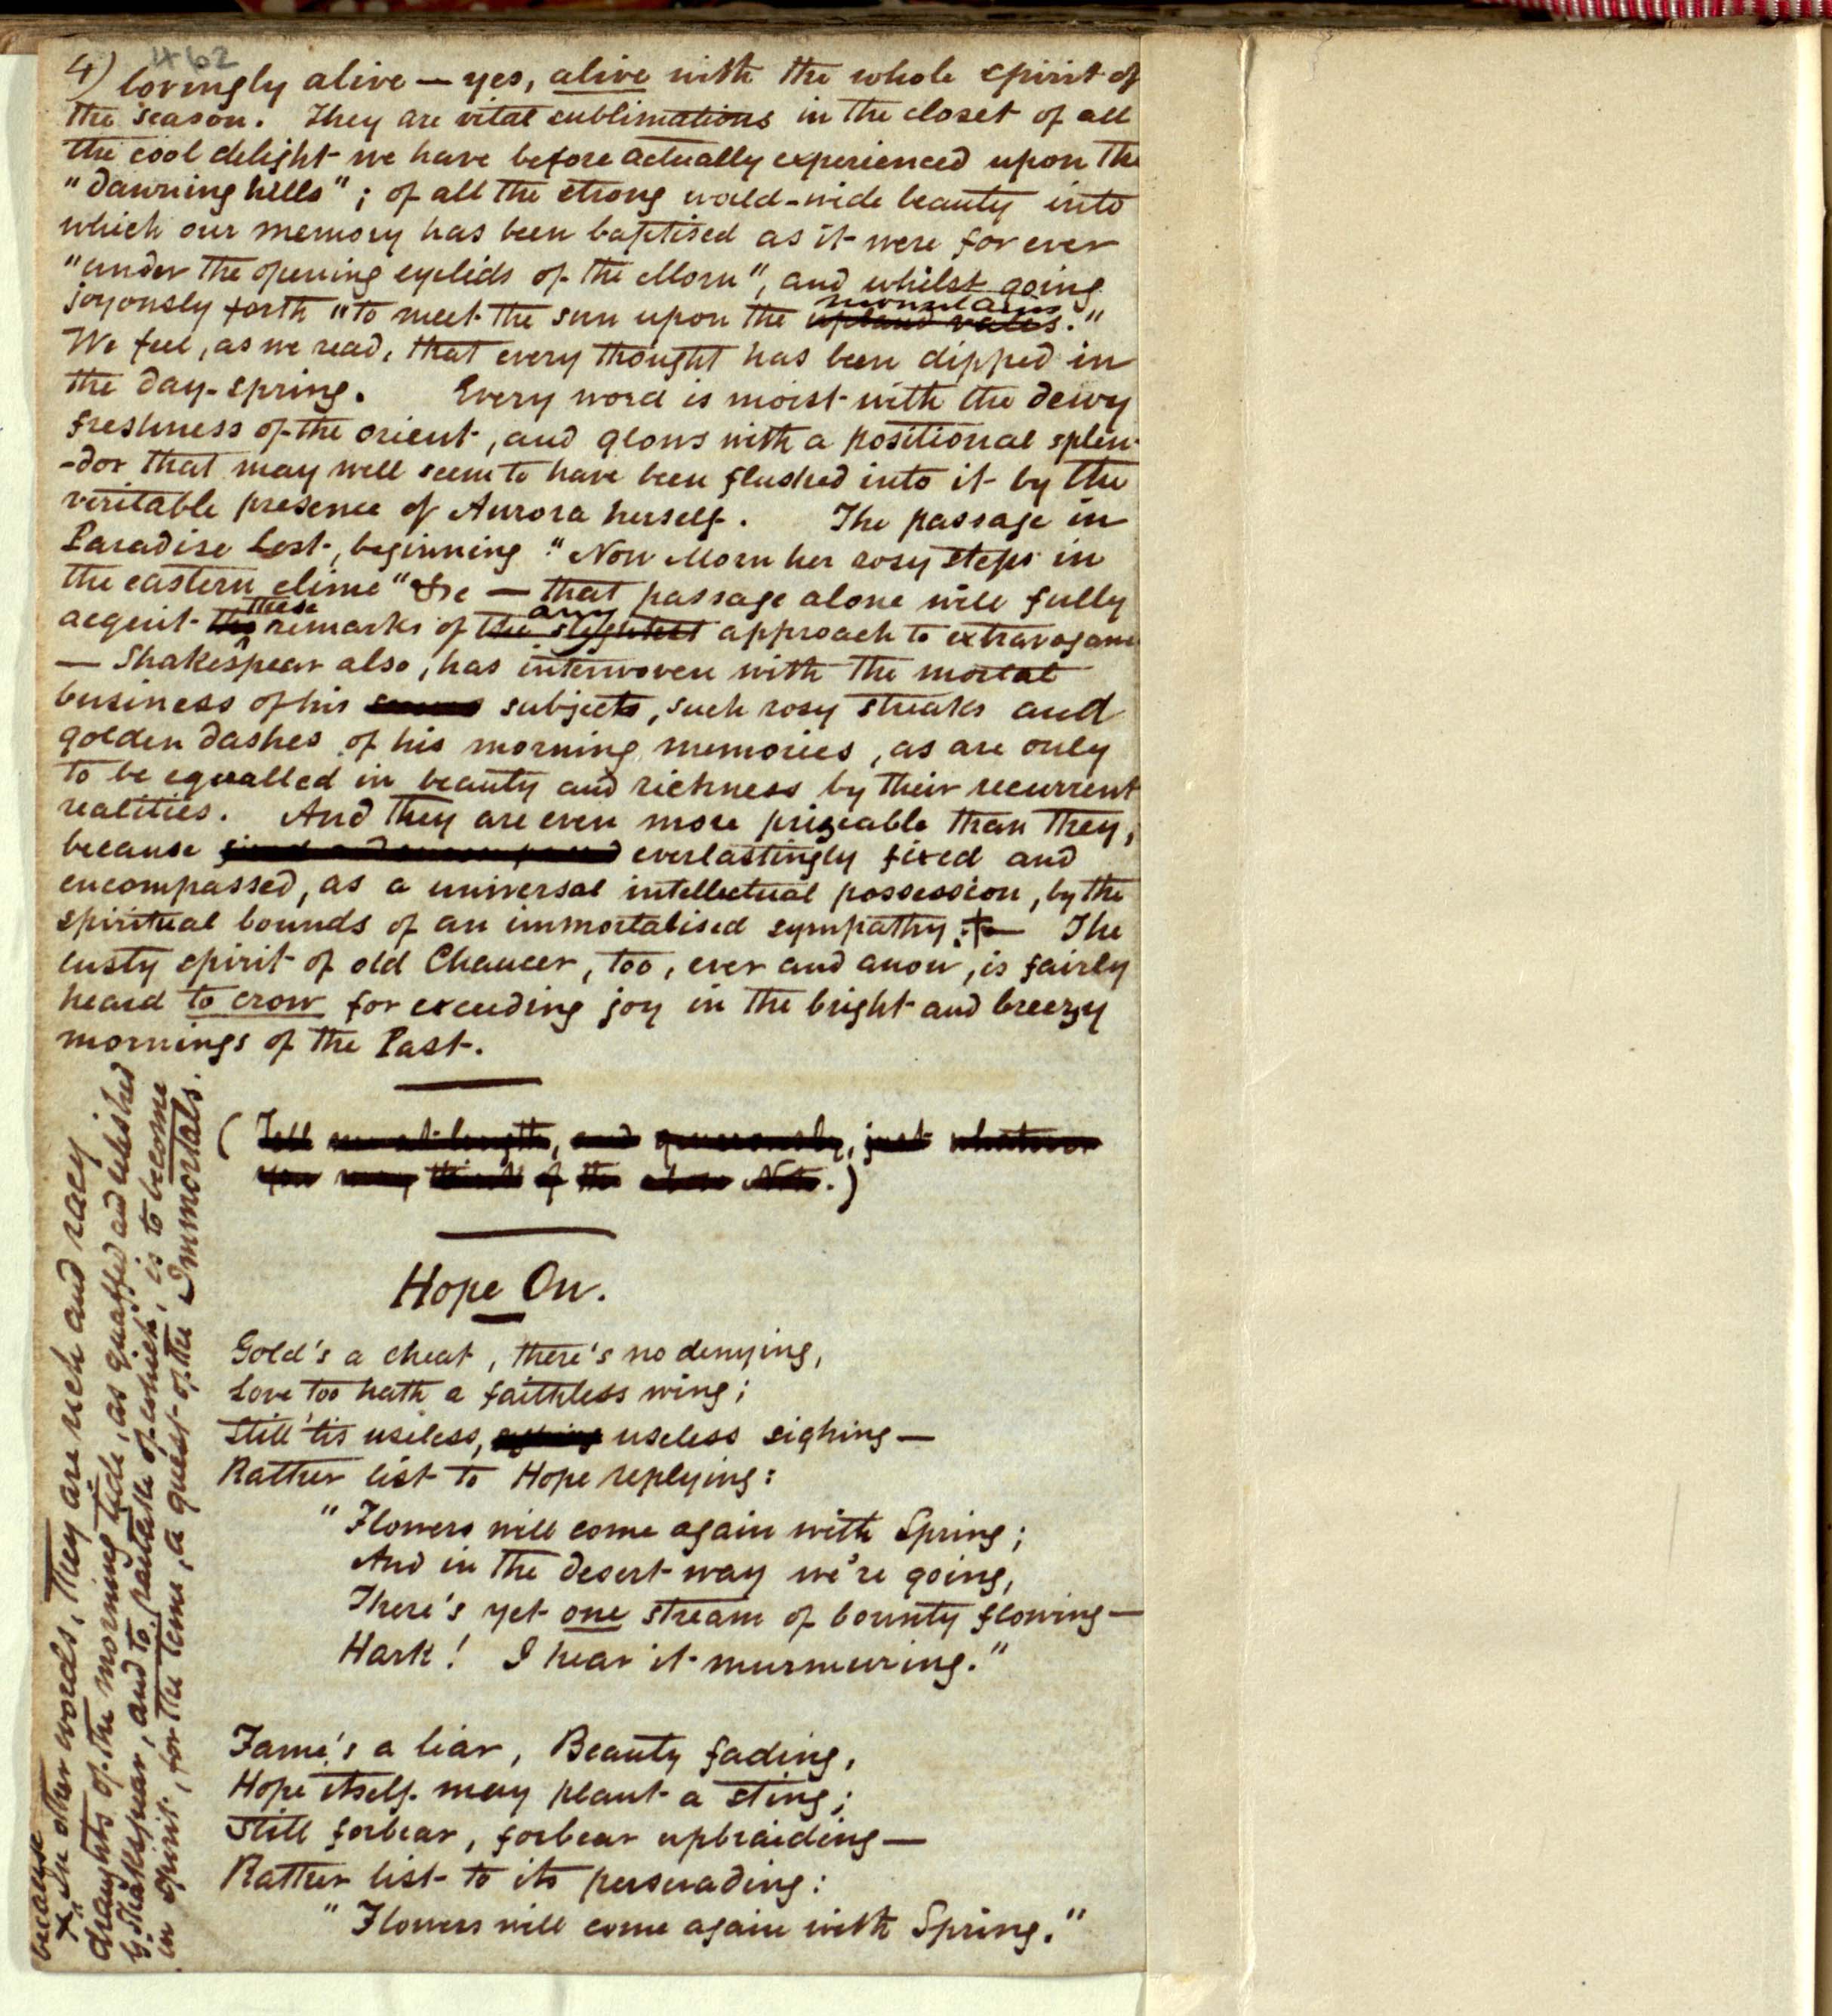 462
4) lovingly alive — yes, alive with the whole spirit of
the season. They are vital sublimations in the closet of all
the cool delight we have before actually experienced upon the
"dawning hills"; of all the strong world-wide beauty into
which our memory has been baptised as it were for ever
"under the opening eyelids of the Morn", and whilst going
mountains
joyously forth "to meet the sun upon the upland vales."
We feel, as we read, that every thought has been dipped in
the day-spring. Every word is moist with the dewy
freshness of the orient, and glows with a positional splen-
-dor that may well seem to have been flushed into it by the
veritable presence of Aurora herself. The passage in
Paradise Lost, beginning "Now Morn her rosy steps in
the eastern clime" &c — that passage alone will fully
these any
acquit the remarks of the slightest approach to extravagance
— Shakespear also, has interwoven with the mortal
business of his subjects, such rosy streaks and
golden dashes of his morning memories, as are only
to be equalled in beauty and richness by their recurrent
realities. And they are even more prizeable than they,
because everlastingly fixed and
encompassed, as a universal intellectual possession, by the
spiritual bounds of an immortalised sympathy. + — The
lusty spirit of old Chaucer, too, ever and anon, is fairly
heard to crow for exceeding joy in the bright and breezy
mornings of the Past.
(Tell me at length, and generously, just whatever
you may think of the above Note.)
Hope On.
Gold's a cheat, there's no denying,
Love too hath a faithless wing;
Still 'tis useless, useless sighing —
Rather list to Hope replying:
"Flowers will come again with Spring;
And in the desert way we're going,
There's yet one stream of bounty flowing —
Hark! I hear it murmuring."
Fame's a liar, Beauty fading,
Hope itself may plant a sting;
Still forbear, forbear upbraiding —
Rather list to its persuading:
"Flowers will come again with Spring."
because
+ In other words, they are rich and racy
draughts of the morning tide, as quaffed and relished
by Shakspear, and to partake of which, is to become
in spirit, for the time, a guest of the Immortals.